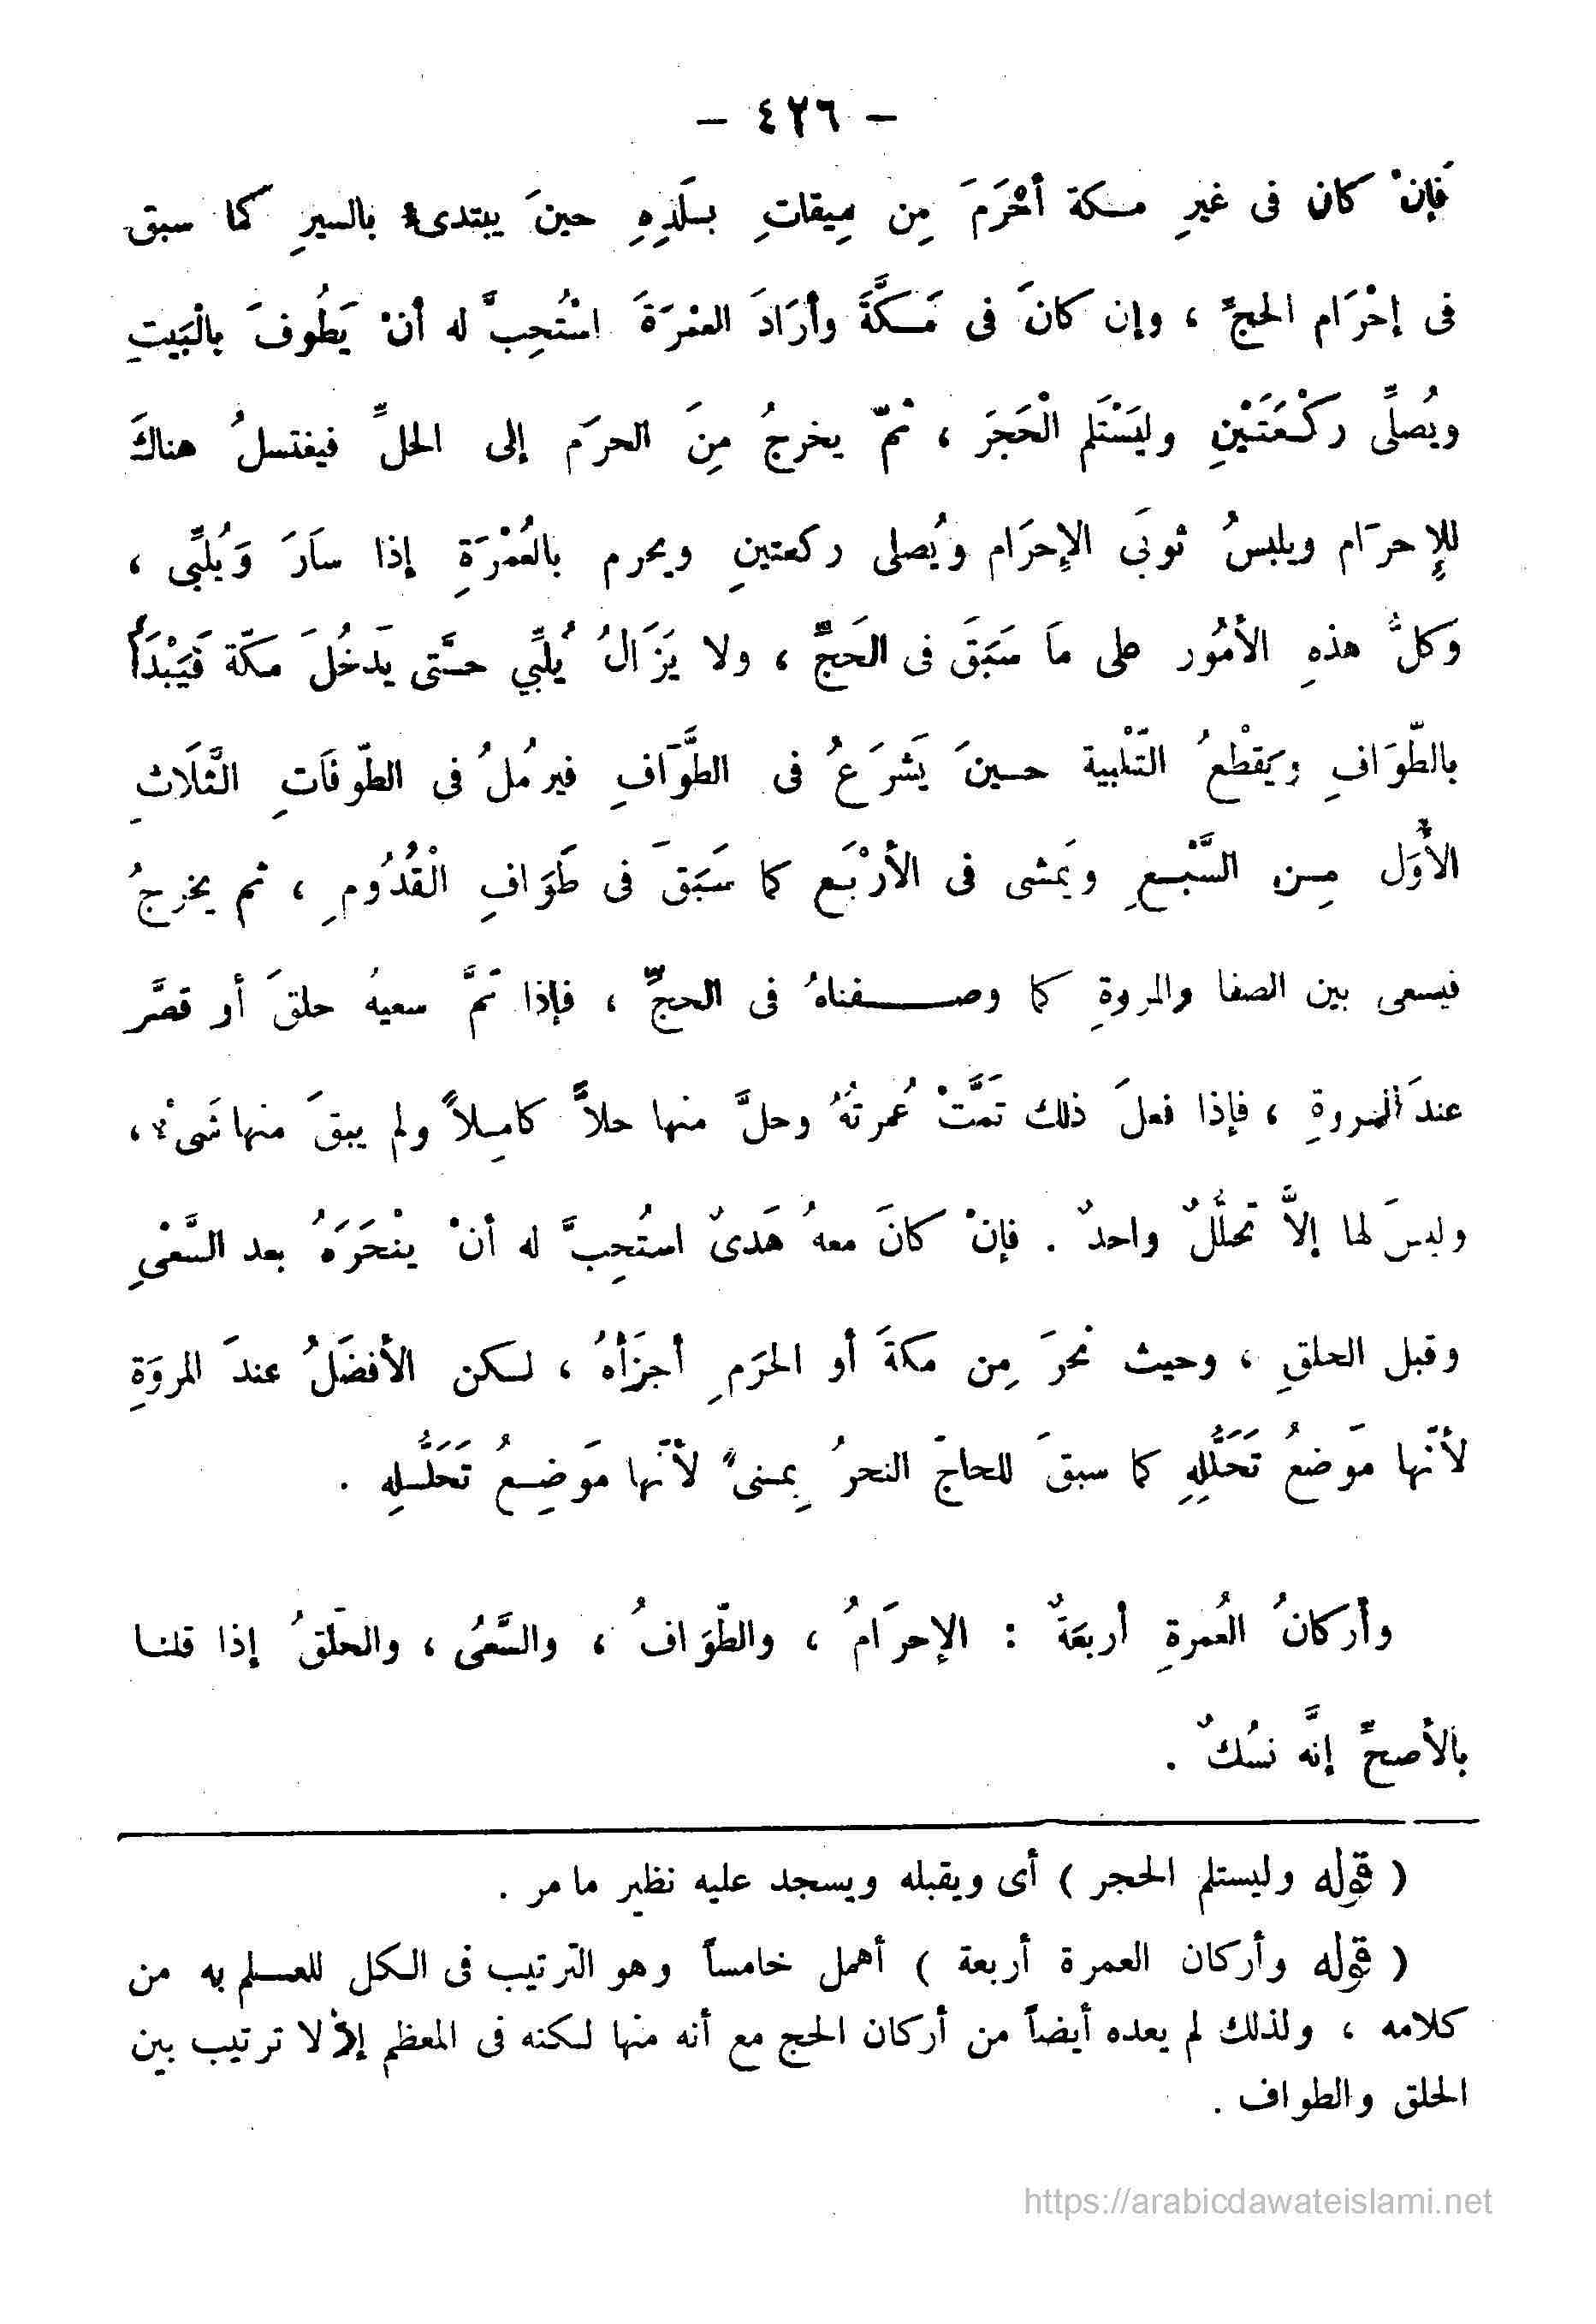 - ٤٢٦ -
فإنْ كان فى غيرِ مكة أحْرَمَ مِن مِيقاتِ بَلَدِهِ حينَ يبتدىء بالسيرِ كما سبق
فى إحْرَام الحجِّ ، وإن كانَ فى مَكَّةَ وأرَادَ العمْرَةَ اسْتُحِبَّ له أنْ يَطُوفَ بالْبَيتِ
ويُصلِّى ركْعَتَيْنِ وليَسْتَلم الْحَجَرَ ، ثمّ يخرجُ مِنَ الحرَم إلى الحلِّ فيغتسلُ هناكَ
للإِحرَام ويلبسُ ثوبَى الإِحرَام ويُصلى ركعتينِ ويحرم بالعُمْرَةِ إذا سَارَ وَيُلبِّى ،
وَكلُّ هذهِ الأمُور على مَا سَبَقَ فى الحَجِّ ، ولا يَزَالُ يُلبِّي حتَّى يَدخُلَ مكّة فَيَبْدَأ
بالطّوَافِ ويَقطْعُ التّلْبية حينَ يَشرَعُ فى الطَّوَافِ فيرمُلُ فى الطّوفَاتِ الثَّلَاثِ
الأُوَل مِن السَّبْعِ ويَمشى فى الأرْبَع كما سَبَقَ فى طَوَافِ الْقُدُومِ ، ثم يخرجُ
فيسعى بين الصفا والمروةِ كما وصفناهُ فى الحجِّ ، فإذا تمَّ سعيهُ حلقَ أو قصَّر
عندَ المروةِ ، فإذا فعلَ ذلك تَمَّتْ عُمرتُهُ وحلَّ منها حلاًّ كامِلاً ولم يبقَ منها شَىْءٌ ،
وليسَ لها إلاَّ تحلُّلٌ واحدٌ . فإنْ كانَ معهُ هَدىٌ استُحِبَّ له أنْ ينْحَرَهُ بعد السَّعْىِ
وقبل الحلقِ ، وحيث نحرَ مِن مكةَ أو الحرَمِ أجزَأهُ ، لكن الأفضَلُ عندَ المروَةِ
لأنّها مَوضعُ تَحَلُّلِهِ كما سبقَ للحاجّ النحرُ بِمنىً لأنّها مَوضِعُ تَحَلُّلِهِ .
وأركانُ العُمرةِ أربعَةٌ : الإحرَامُ ، والطّوَافُ ، والسَّعُى ، والحلَقُ إذا قلنا
بالأصحِّ إنَّه نسُكٌ .
( قوله وليستلم الحجر ) أى ويقبله ويسجد عليه نظير ما مر .
( قوله وأركان العمرة أربعة ) أهمل خامساً وهو الترتيب فى الكل للعلم به من
كلامه ، ولذلك لم يعده أيضاً من أركان الحج مع أنه منها لكنه فى المعظم إذ لا ترتيب بين
الحلق والطواف .
https://arabicdawateislami.net